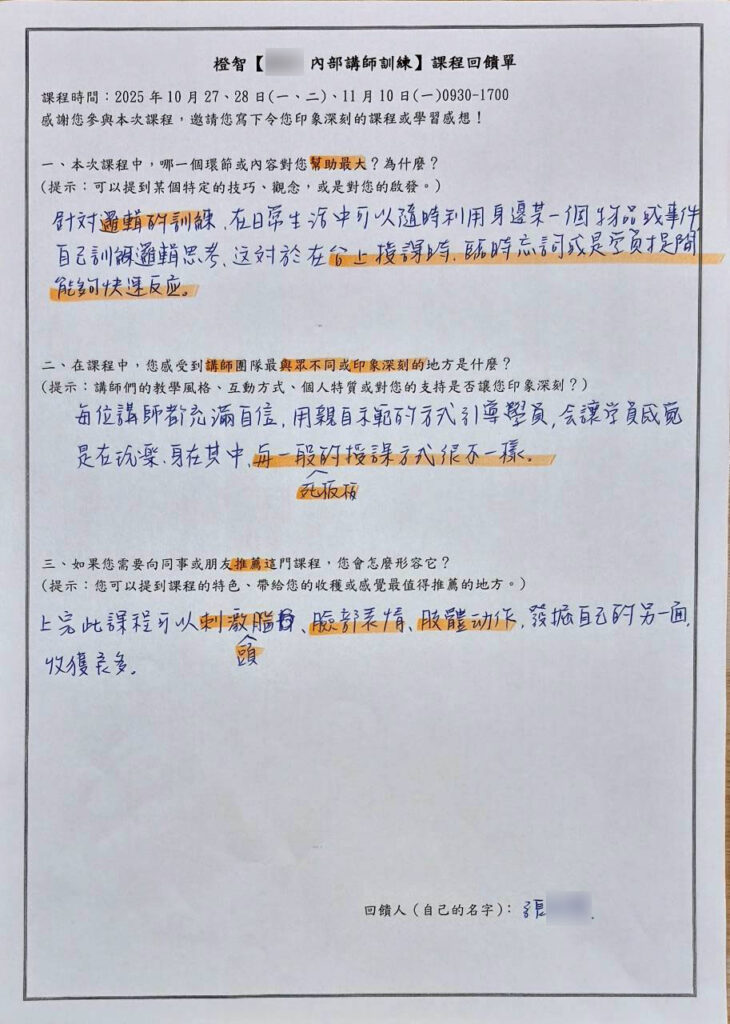 橙智【 內部講師訓練】課程回饋單
課程時間：2025 年 10 月 27、28 日(一、二)、11 月 10 日(一)0930-1700
感謝您參與本次課程，邀請您寫下令您印象深刻的課程或學習感想！
一、本次課程中，哪一個環節或內容對您幫助最大？為什麼？
(提示：可以提到某個特定的技巧、觀念，或是對您的啟發。)
針對邏輯的訓練，在日常生活中可以隨時利用身邊某一個物品或事件
自己訓練邏輯思考，这對於在台上授課時，臨時忘詞或是学員提問
能夠快速反应。
二、在課程中，您感受到講師團隊最與眾不同或印象深刻的地方是什麼？
(提示：講師們的教學風格、互動方式、個人特質或對您的支持是否讓您印象深刻？)
每位講師都充滿自信，用親自示範的方式引導學員，会讓学員感覺
是在玩樂，身在其中，與一般的授課方式很不一樣。
死板板
三、如果您需要向同事或朋友推薦這門課程，您會怎麼形容它？
(提示：您可以提到課程的特色、帶給您的收穫或感覺最值得推薦的地方。)
上完此課程可以刺激腦、臉部表情、肢體动作，發掘自己的另一面，
頭
收獲良多。
回饋人（自己的名字）：張